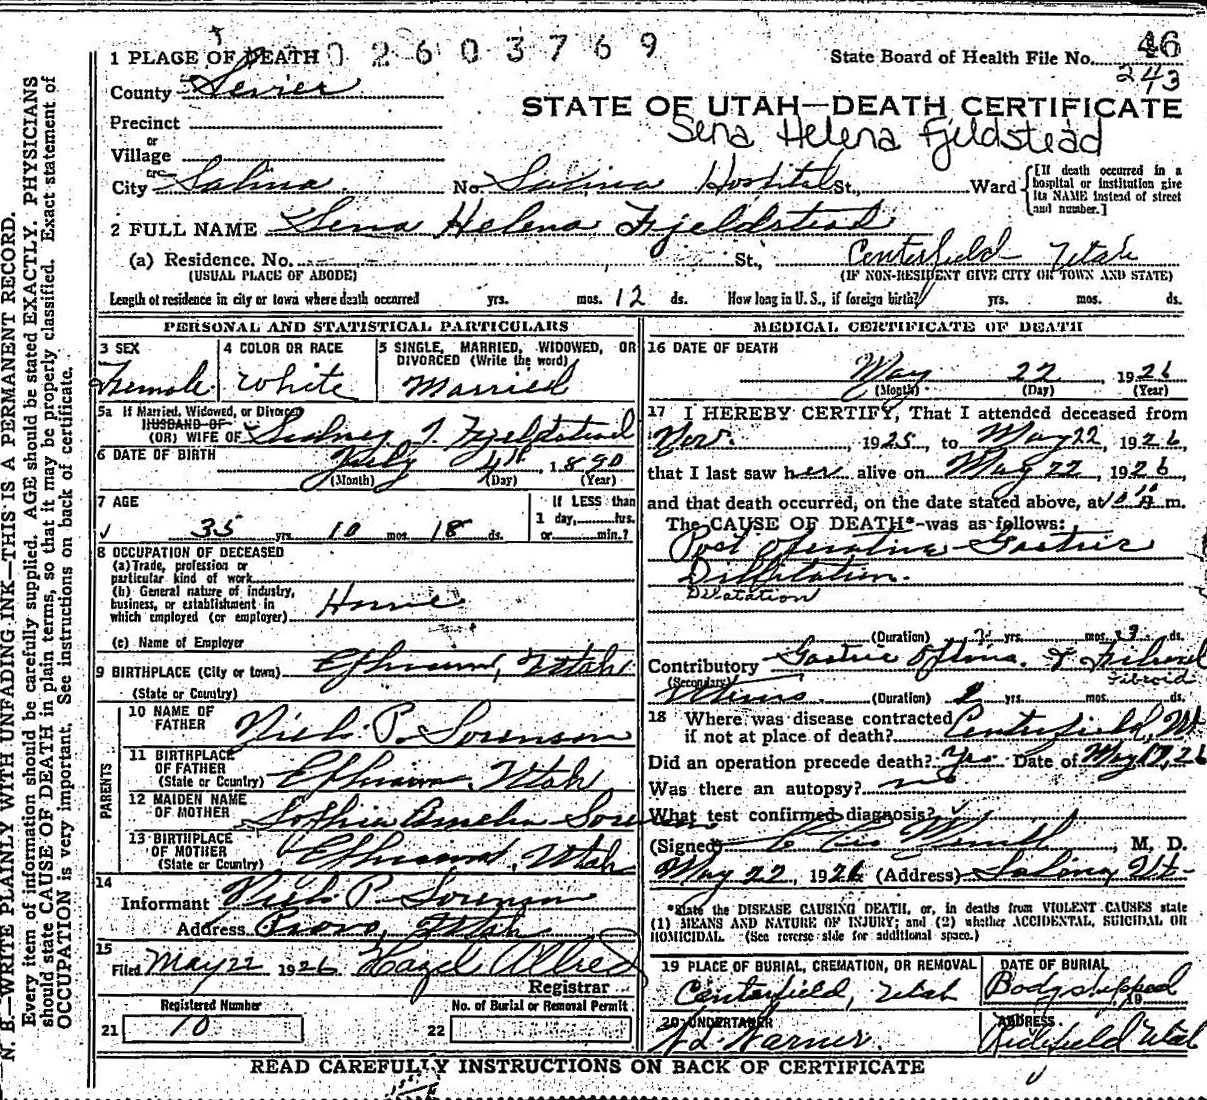 1 PLACE OF DEATH 02603769 State Board of Health File No. 46
243
County Sevier
STATE OF UTAH—DEATH CERTIFICATE
Precinct
Sena Helena Fjeldstead
or
Village
or
City Salina No. Salina Hospital St., Ward
[If death occurred in a hospital or institution give its NAME instead of street and number.]
2 FULL NAME Sena Helena Fjeldstead
(a) Residence. No. St., Centerfield Utah
(USUAL PLACE OF ABODE) (IF NON-RESIDENT GIVE CITY OR TOWN AND STATE)
Length of residence in city or town where death occurred yrs. mos. 12 ds. How long in U. S., if foreign birth? yrs. mos. ds.
PERSONAL AND STATISTICAL PARTICULARS
3 SEX 4 COLOR OR RACE 5 SINGLE, MARRIED, WIDOWED, OR
DIVORCED (Write the word)
Female White Married
5a If Married, Widowed, or Divorced
HUSBAND OF
(OR) WIFE OF Sidney Fjeldstead
6 DATE OF BIRTH July 4th, 1890
(Month) (Day) (Year)
7 AGE If LESS than
35 yrs. 10 mos. 18 ds. 1 day, hrs.
or min.?
8 OCCUPATION OF DECEASED
(a) Trade, profession or
particular kind of work
(b) General nature of industry,
business, or establishment in
which employed (or employer) Home
(c) Name of Employer
9 BIRTHPLACE (City or town) Ephraim, Utah
(State or Country)
PARENTS
10 NAME OF
FATHER Niels P. Sorenson
11 BIRTHPLACE
OF FATHER
(State or Country) Ephraim, Utah
12 MAIDEN NAME
OF MOTHER Sophia Amelia Sorenson
13 BIRTHPLACE
OF MOTHER
(State or Country) Ephraim, Utah
14
Informant Niels P. Sorenson
Address Provo, Utah
15
Filed May 22 1926 Hazel Allred
Registrar
Registered Number No. of Burial or Removal Permit
21 10 22
MEDICAL CERTIFICATE OF DEATH
16 DATE OF DEATH
May 22, 1926
(Month) (Day) (Year)
17 I HEREBY CERTIFY, That I attended deceased from
Nov. 1925, to May 22, 1926,
that I last saw her alive on May 22, 1926,
and that death occurred, on the date stated above, at m.
The CAUSE OF DEATH* was as follows:
Post operative Gastric
Dilatation
(Duration) yrs. mos. ds.
Contributory Gastric & Fibroid
Fibroid
(Secondary) Uterus (Duration) yrs. mos. ds.
18 Where was disease contracted
if not at place of death? Centerfield, Ut
Did an operation precede death? Yes Date of May 17, 26
Was there an autopsy? no
What test confirmed diagnosis?
(Signed) M. D.
May 22, 1926 (Address) Salina Ut.
*State the DISEASE CAUSING DEATH, or, in deaths from VIOLENT CAUSES state
(1) MEANS AND NATURE OF INJURY; and (2) whether ACCIDENTAL, SUICIDAL OR
HOMICIDAL. (See reverse side for additional space.)
19 PLACE OF BURIAL, CREMATION, OR REMOVAL DATE OF BURIAL
Centerfield, Utah Body shipped
19
20 UNDERTAKER ADDRESS
Warner. Richfield Utah
READ CAREFULLY INSTRUCTIONS ON BACK OF CERTIFICATE
N. B.—WRITE PLAINLY WITH UNFADING INK—THIS IS A PERMANENT RECORD.
Every item of information should be carefully supplied. AGE should be stated EXACTLY. PHYSICIANS
should state CAUSE OF DEATH in plain terms, so that it may be properly classified. Exact statement of
OCCUPATION is very important. See instructions on back of certificate.